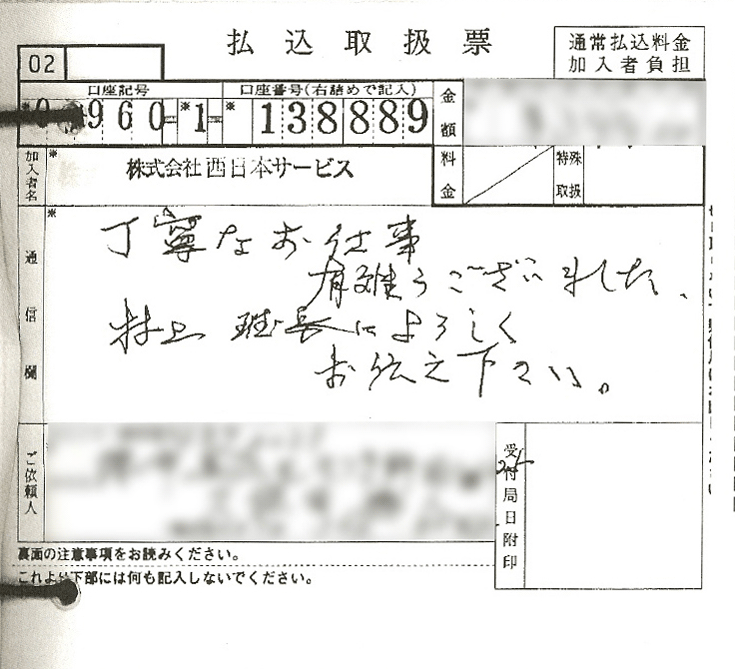 払込取扱票
通常払込料金
加入者負担
02
口座記号
口座番号(右詰めで記入)
960=*1=*138889
金額
加入者名
* 株式会社西日本サービス
料金
特殊取扱
通信欄
*
丁寧なお仕事
有難うございました、
村上 班長によろしく
お伝え下さい。
ご依頼人
受付局日附印
裏面の注意事項をお読みください。
これより下部には何も記入しないでください。